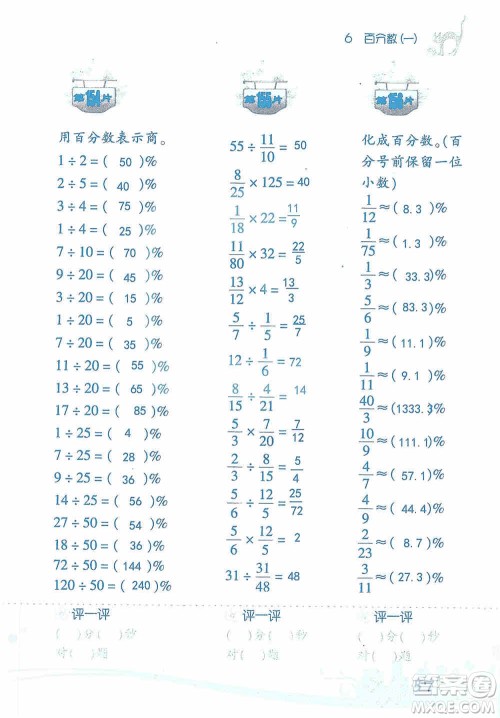 6 百分数(一)
第154片
用百分数表示商。
1÷2=( 50 )%
2÷5=( 40 )%
3÷4=( 75 )%
1÷4=( 25 )%
7÷10=( 70 )%
9÷20=( 45 )%
3÷20=( 15 )%
1÷20=( 5 )%
7÷20=( 35 )%
11÷20=( 55 )%
13÷20=( 65 )%
17÷20=( 85 )%
1÷25=( 4 )%
7÷25=( 28 )%
9÷25=( 36 )%
14÷25=( 56 )%
27÷50=( 54 )%
18÷50=( 36 )%
72÷50=( 144 )%
120÷50=( 240 )%
评一评
( )分( )秒
对( )题
第155片
55÷11/10=50
8/25×125=40
1/18×22=11/9
11/80×32=22/5
13/12×4=13/3
5/7÷1/5=25/7
12÷1/6=72
8/15÷4/21=14/5
1/5÷7/20=7/12
2/3÷8/15=5/4
11/15÷2/22=
31÷31/48=48
评一评
( )分( )秒
对( )题
第156片
化成百分数。(百
分号前保留一位
小数)
1/12≈( 8.3 )%
1/75≈( 1.3 )%
1/3≈( 33.3 )%
5/6≈( 83.3 )%
1/9≈( 11.1 )%
1/11≈( 9.0 )%
40/3≈( 1333.3 )%
10/9≈( 111.1 )%
4/7≈( 57.1 )%
4/9≈( 44.4 )%
2/23≈( 8.7 )%
3/11≈( 27.3 )%
评一评
( )分( )秒
对( )题